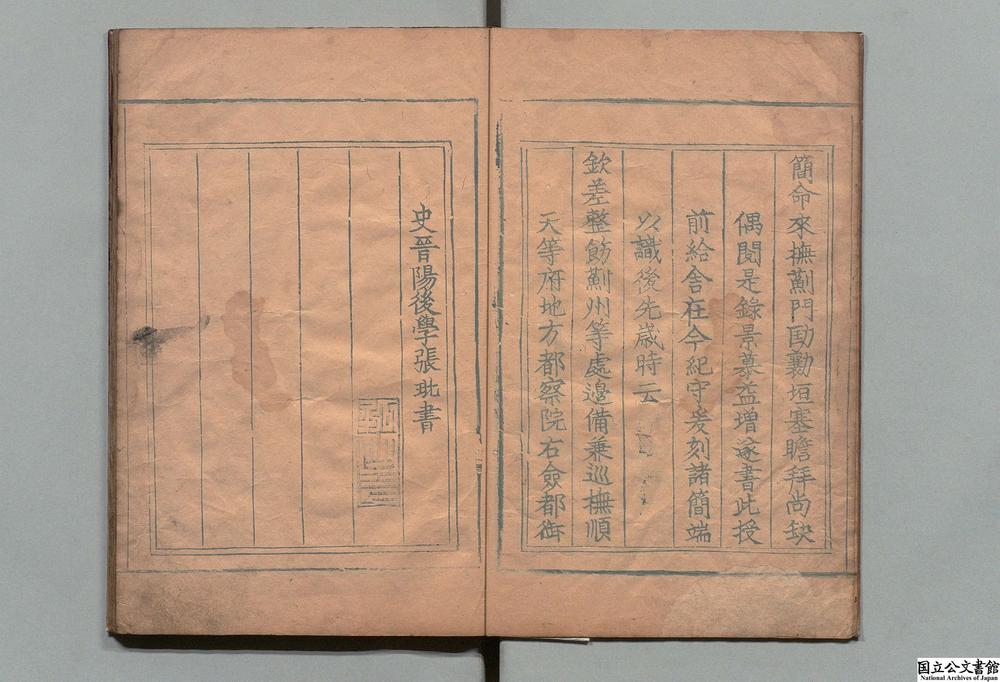 簡命來撫薊門勛勷垣塞瞻拜尚缺
偶閱是錄景慕益增遂書此授
前給舍在今紀守爰刻諸簡端
以識後先歲時云
欽差整飭薊州等處邊備兼巡撫順
天等府地方都察院右僉都御
史晉陽後學張玭書
国立公文書館
National Archives of Japan